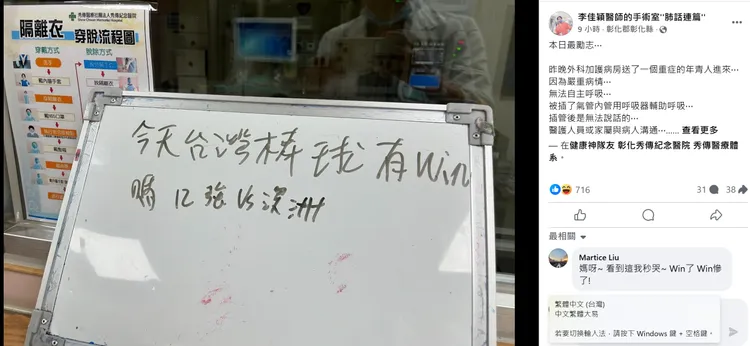 秀傳醫療社團法人秀傳紀念醫院
隔離衣
穿脫流程圖
穿戴方式
脫除方式
今天台灣棒球有Win
嗎 12強 VS 澳洲
李佳穎醫師的手術室"肺話連篇"
9 小時 · 彰化郡彰化縣 ·
本日最勵志…
昨晚外科加護病房送了一個重症的年青人進來…
因為嚴重病情…
無法自主呼吸…
被插了氣管內管用呼吸器輔助呼吸…
插管後是無法說話的…
醫護人員或家屬與病人溝通…...... 查看更多
— 在健康神隊友 彰化秀傳紀念醫院 秀傳醫療體
系。
716
31
38
最相關
Martice Liu
媽呀~ 看到這我秒哭~ Win了 Win慘
了!
繁體中文 (台灣)
中文繁體大易
若要切換輸入法，請按下 Windows 鍵 + 空格鍵。